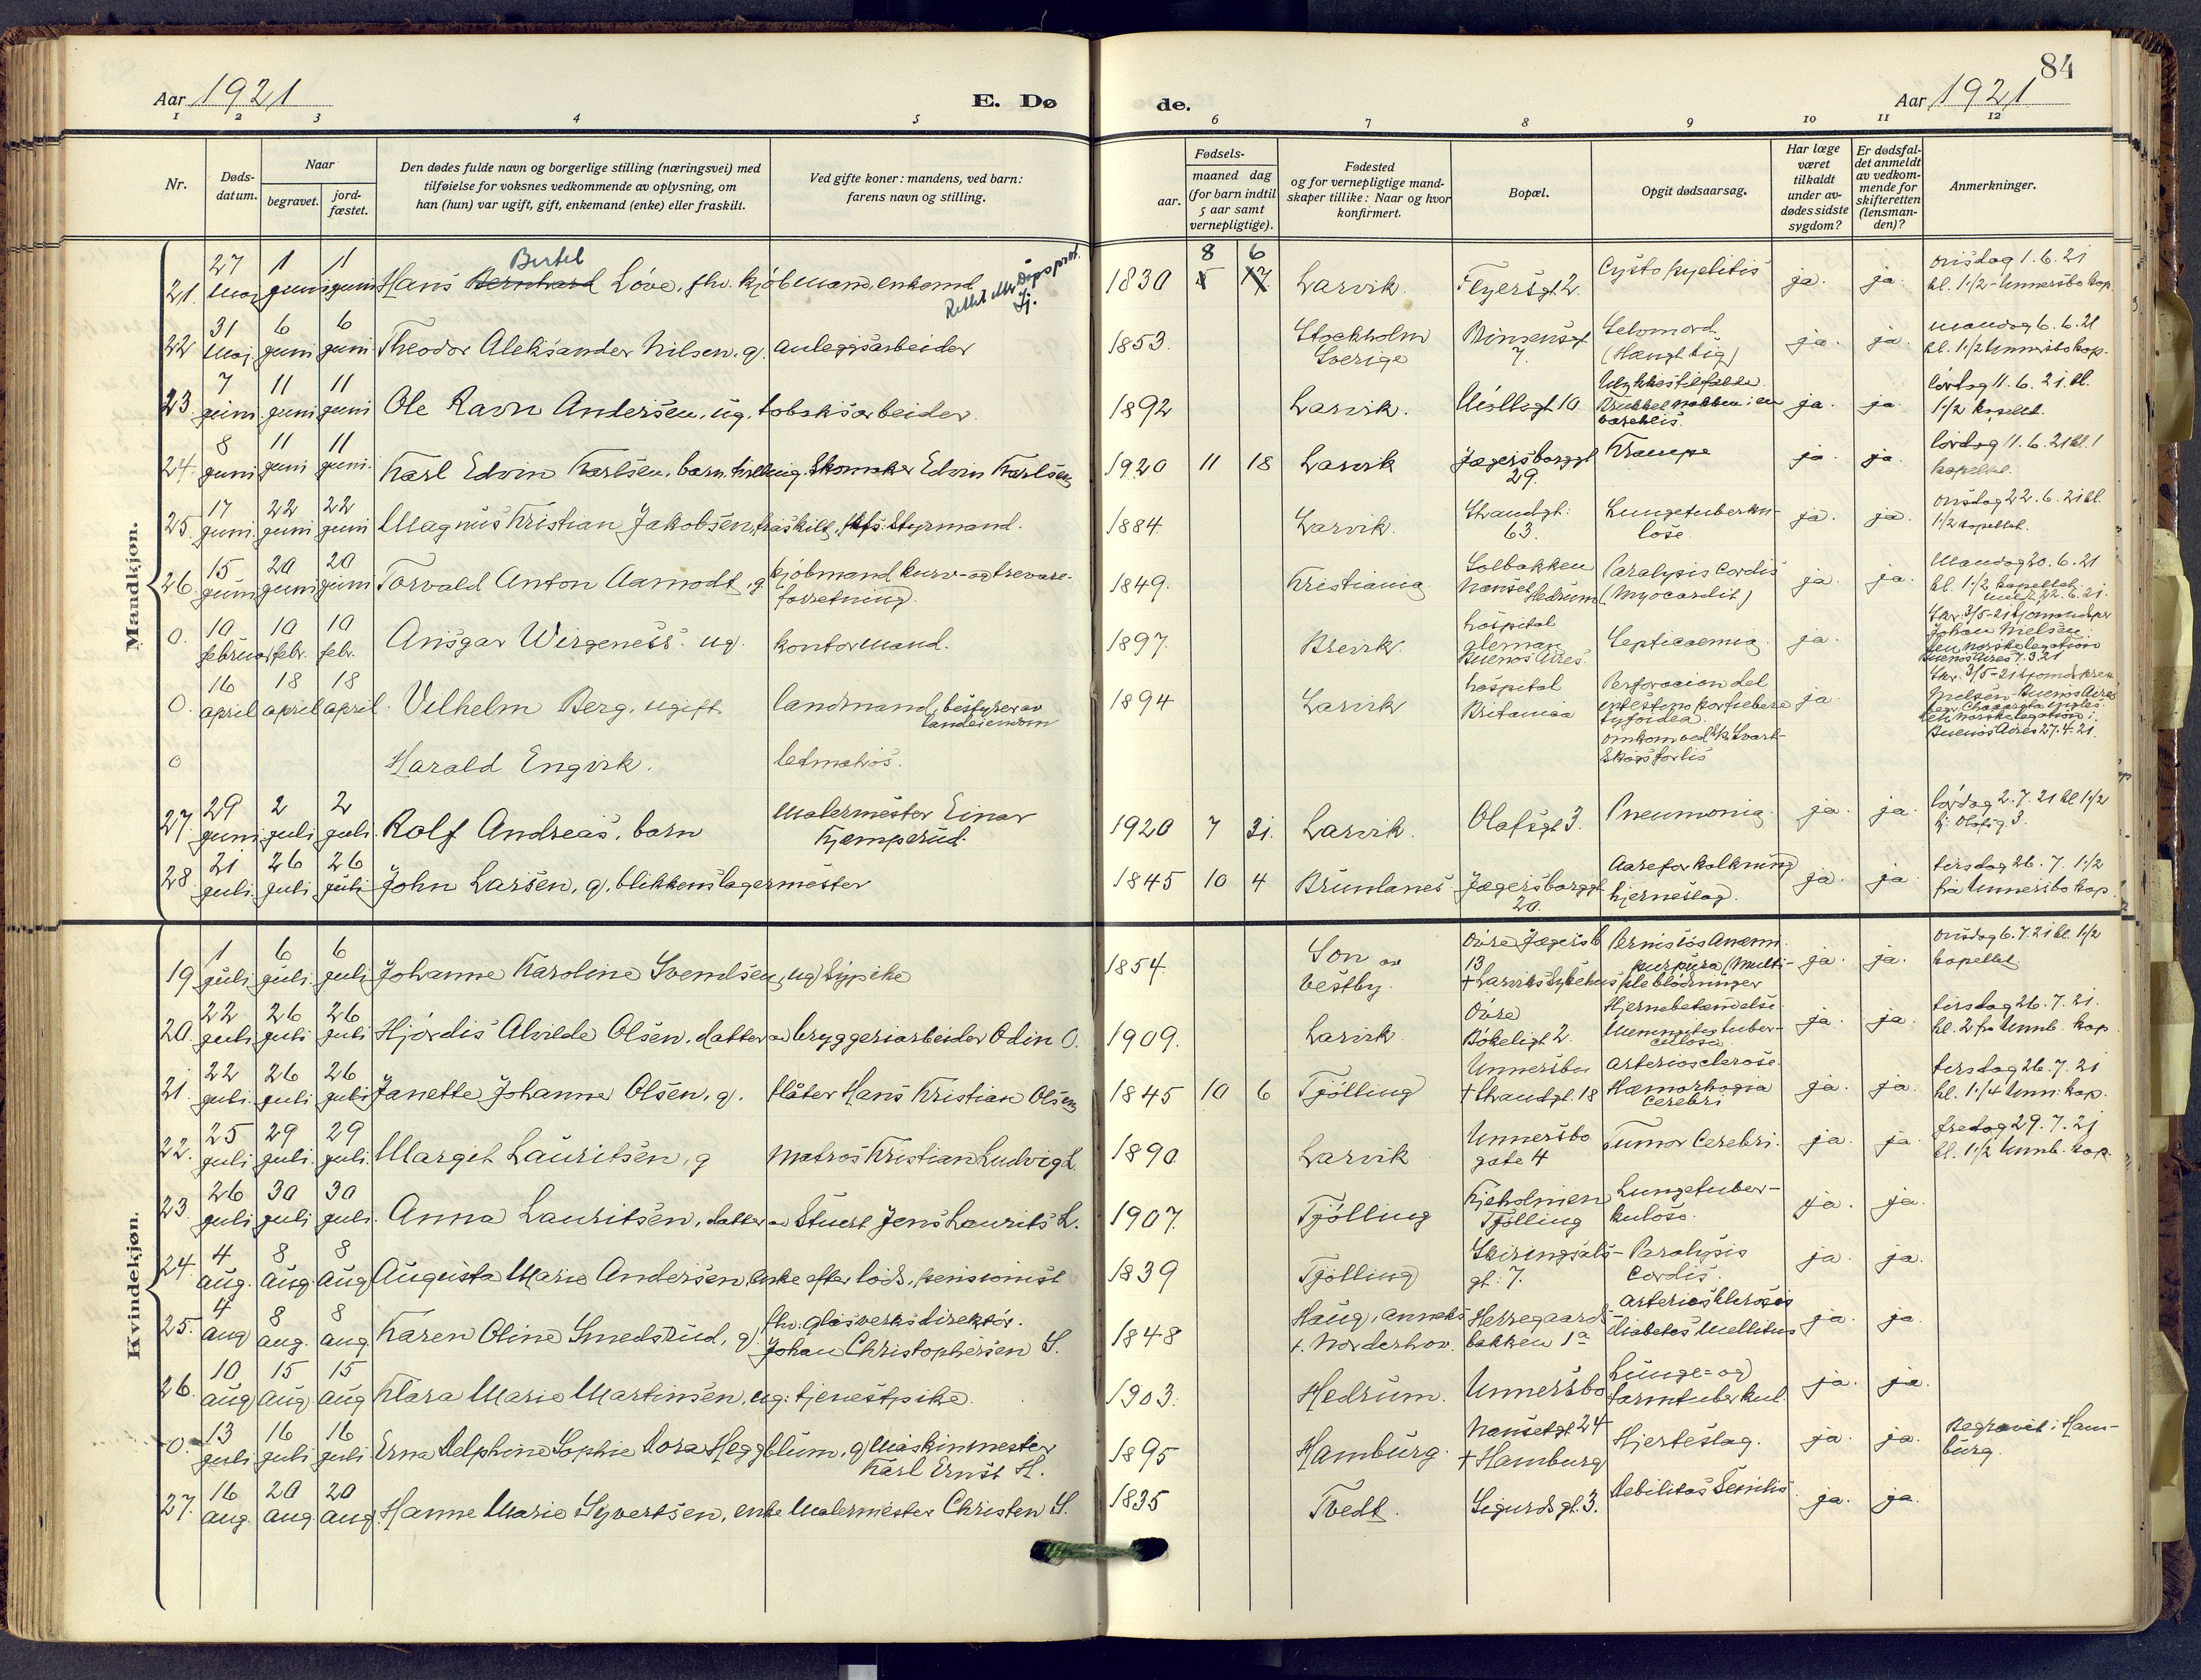 84
Aar 1921
E. Dø
de.
Aar 1921
1 2 3 4 5 6 7 8 9 10 11 12
Nr.
Døds-
datum.
Naar
begravet.
jord-
fæstet.
Den dødes fulde navn og borgerlige stilling (næringsvei) med
tilføielse for voksnes vedkommende av oplysning, om
han (hun) var ugift, gift, enkemand (enke) eller fraskilt.
Ved gifte koner: mandens, ved barn:
farens navn og stilling.
Fødsels-
aar.
maaned dag
(for barn indtil
5 aar samt
vernepligtige).
Fødested
og for vernepligtige mand-
skaper tillike: Naar og hvor
konfirmert.
Bopæl.
Opgit dødsaarsag.
Har læge
været
tilkaldt
under av-
dødes sidste
sygdom?
Er dødsfal-
det anmeldt
av vedkom-
mende for
skifteretten
(lensman-
den)?
Anmerkninger.
Mandkjøn.
21. 27 Maj 11 juni 11 juni Hans Bernhard Bertel Løve, fhv. kjøbmand, enkemd. 1830 8 6 Larvik. Feyersgt. 2. Cysto pyelitis ja. ja. onsdag 1.6.21
kl. 1 1/2 - Unnersbo kap.
22 31 Maj. 6 juni 6 juni Theodor Aleksander Nilsen, g. anlegsarbeider 1853. Stockholm Sverige 7. Selvmord (Hængt sig) ja. ja. mandag 6.6.21
kl. 1 1/2 Unnersbo kap.
23. 7 juni. 11 juni 11 juni Ole Ravn Andersen, ug. tobaksarbeider. 1892 Larvik. Møllegt 10 Ulykkestilfælde ja. ja lørdag 11.6.21. kl.
1 1/2 kapellet.
24. 8 juni 11 juni 11 juni. Karl Edvin Karlsen, barn, tvilling. Skomaker Edvin Karlsen 1920 11 18 Larvik Jægersborggt 29. Krampe ja. ja. lørdag 11.6.21 kl 1
kapellet.
25. 17 juni. 22 juni 22 juni Magnus Kristian Jakobsen, fraskilt, Styrmand. 1884. Larvik. Strandgt. 63. Lungetuberku-
lose ja. ja. onsdag 22.6.21 kl.
1 1/2 kapellet.
26. 15 juni 20 juni 20 juni Torvald Anton Aamodt, g. kjøbmand kurv- og trevare-
forretning. 1849. Kristiania Solbakken Nanset, Hedrum Paralysis Cordis
(Myocardit) ja. ja. Mandag 20.6.21
kl. 1 1/2 kapellet.
0. 10 februar 10 febr. 10 febr. Ansgar Wirgeness. ug. kontormand. 1897. Brevik. hospital aleman Buenos Aires. Septicaemia. ja. Skr. 3/5-21 sjømandspr
Johan Nielsen.
den norske legation
Buenos Aires 7.3.21
0. 16 april 18 april 18 april. Vilhelm Berg, ugift landmand, bestyrer av
landeiendom 1894 Larvik hospital Britanica Perforacion del
intestino por fiebere
tyfoidea. ja. Skr. 3/5-21 sjomdspræst
Nielsen Buenos Aires
norske legation i
Buenos Aires 27.4.21.
0 Harald Engvik. letmatros. omkom ved S/k Svart-
skogs forlis
27. 29 juni 2 juli 2 juli. Rolf Andreas, barn Malermester Einar
Kjæmperud. 1920 7 31. Larvik. Olafsgt 3. Pneumonia. ja. ja. lørdag 2.7.21 kl 1 1/2
fr. Olafsg. 3.
28. 21 juli. 26 juli 26 juli John Larsen, g. blikkenslagermester 1845 10 4 Brunlanes Jægersborggt 20. Aareforkalkning
hjerneslag. ja. ja. tirsdag 26.7. 1 1/2
fra Unnersbo kap.
Kvindekjøn.
19 1 juli 6 juli. 6 juli Johanne Karoline Svendsen, ug sypike 1854. Son av
Vestby. Øvre Jægersb 13
+ Larviks Sykehus Pernisiøs Anæmi.
purpura (Multi-
ple blødninger ja. ja. onsdag 6.7.21 kl. 1 1/2
kapellet.
20. 22 juli 26 juli 26 juli Hjørdis Alvilde Olsen, datter av bryggeriarbeider Odin O. 1909. Larvik. Øvre
Bøkeligt 2. Hjernebetændelse
Meningites tuber-
culosa ja. ja. tirsdag 26.7.21.
kl. 2 fra Unnb. kap.
21. 22 juli. 26 juli 26 juli Janette Johanne Olsen, g. flåter Hans Kristian Olsen 1845 10 6 Tjølling Unnersbo
+ Strandgt. 18 arteriosclerose.
Hæmorhagia
Cerebri ja. ja. tirsdag 26.7.21
kl. 1 1/4 Unn. kap.
22. 25 juli 29 juli. 29 juli. Margit Lauritsen, g matros Kristian Ludvig L. 1890. Larvik Unnersbo
gate 4 Tumor Cerebri. ja. ja. fredag 29.7.21
kl. 1 1/2 Unnb. kap.
23. 26 juli 30 juli 30 juli. Anna Lauritsen, datter av Stuert Jens Laurits L. 1907. Tjølling Kjeholmen
Tjølling Lungetuber-
kulose. ja. ja.
24. 4 aug. 8 aug. 8 aug Augusta Marie Andersen, enke efter lods, pensionist 1839 Tjølling Skiringsals-
gt. 7. Paralysis
Cordis. ja. ja.
25. 4 aug 8 aug. 8 aug. Karen Oline Smedsrud, g. fhv. glasverksdirektør.
Johan Christophersen S. 1848 Haug, anneks
t. Norderhov. Herregaards-
bakken 1a arteriosklerosis
diabetes Mellitus ja. ja.
26. 10 aug 15 aug 15 aug Klara Marie Martinsen, ug. tjenestpike. 1903. Hedrum. Unnersbo Lunge- og
tarmtuberkul. ja. ja.
0. 13 juli 16 juli 16 juli Erna Delphine Sophie Dora Heggblum, g Maskinmester
Karl Ernst H. 1895 Hamburg. Nansetgt 24
+ Hamburg Hjerteslag. ja. ja. Begravet i Ham-
burg.
27. 16 aug. 20 aug. 20 aug. Hanne Marie Syvertsen, enke Malermester Christen S. 1835 Tvedt. Sigurdsgt. 3. Debilitas Senilis ja. ja.